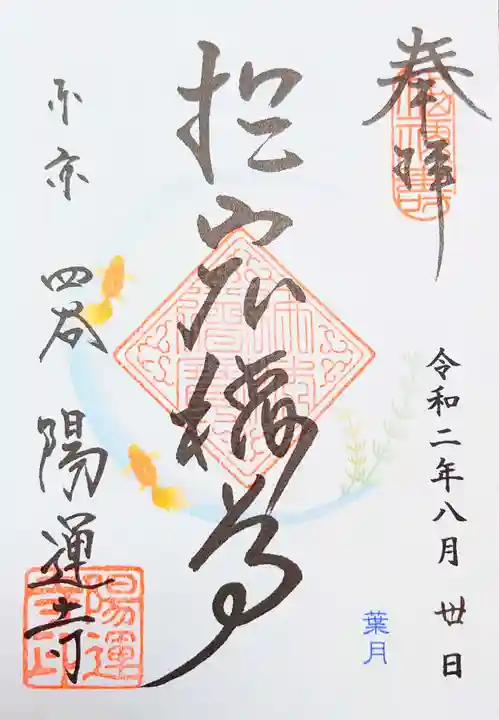 奉拝
令和二年八月 丗日
葉月
於岩稲荷
東京 四谷 陽運寺
陽運寺印